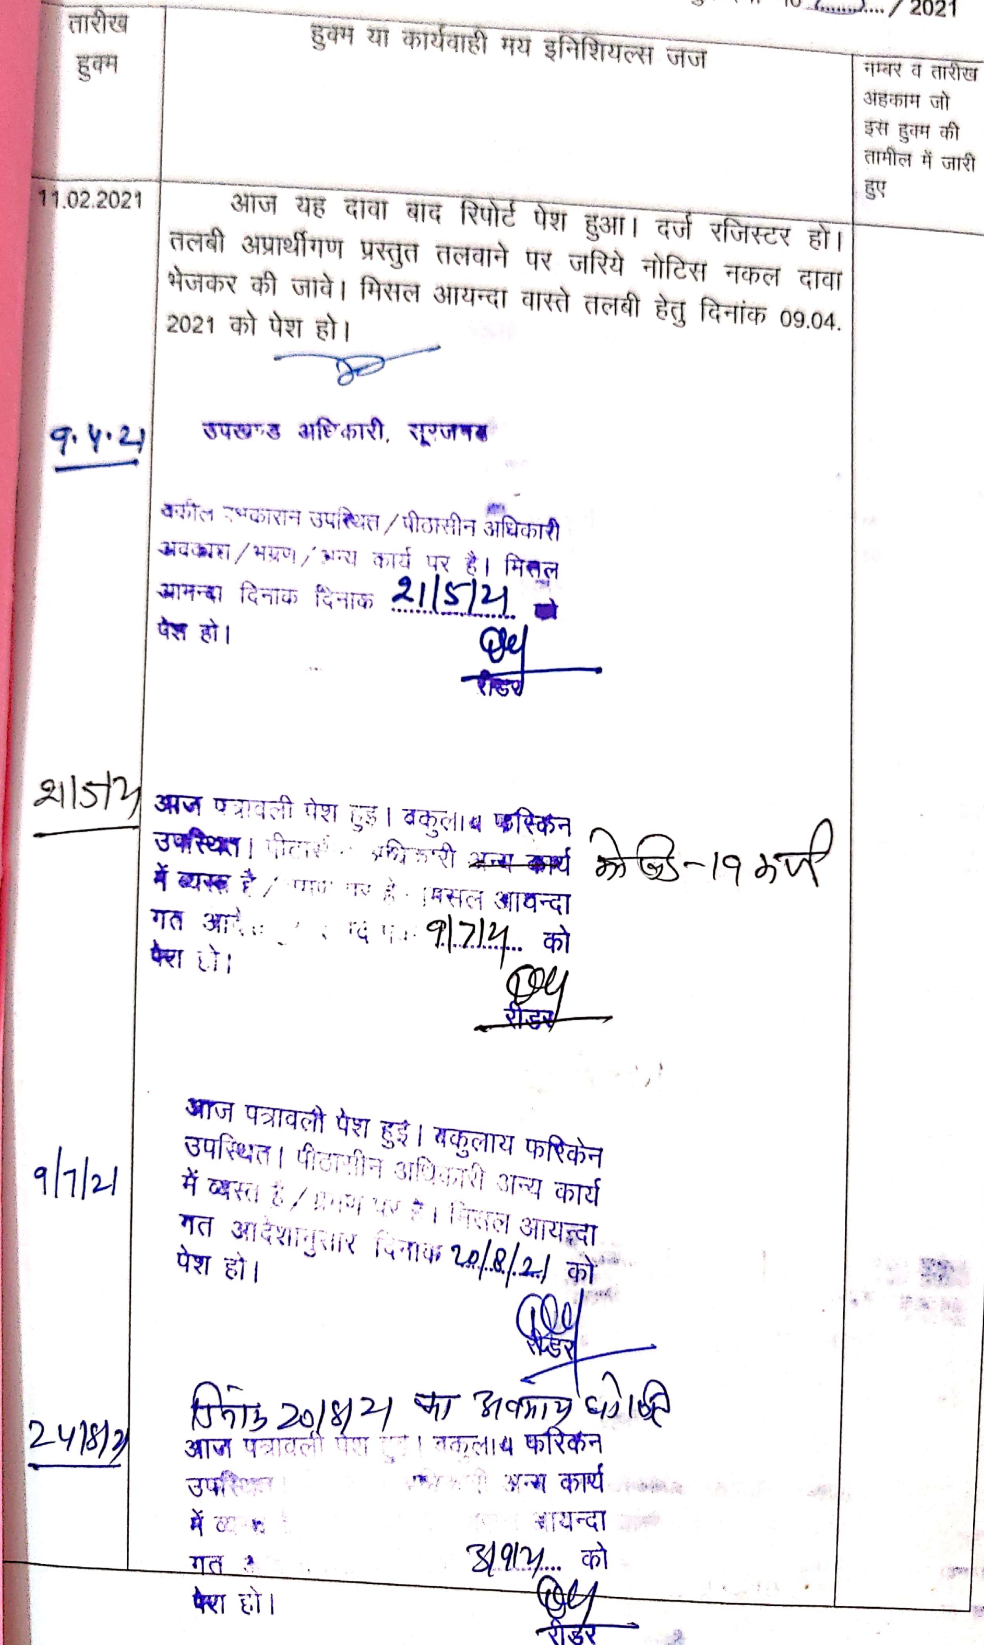 / 2021
तारीख
हुक्म
हुक्म या कार्यवाही मय इनिशियल्स जज
नम्बर व तारीख
अहकाम जो
इस हुक्म की
तामील में जारी
हुए
11.02.2021
आज यह दावा बाद रिपोर्ट पेश हुआ। दर्ज रजिस्टर हो।
तलबी अप्रार्थीगण प्रस्तुत तलवाने पर जरिये नोटिस नकल दावा
भेजकर की जावे। मिसल आयन्दा वास्ते तलबी हेतु दिनांक 09.04.
2021 को पेश हो।
उपखण्ड अधिकारी, सूरजगढ
9.4.21
वकील उपस्थित/पीठासीन अधिकारी
अवकाश/भ्रमण/अन्य कार्य पर है। मिसल
दिनाक दिनाक 21/5/21 को
पेश हो।
रीडर
21/5/21
आज पत्रावली पेश हुई। वकुलाय फरिकेन
उपस्थित। अधिकारी अन्य कार्य कोविड-19
में व्यस्त है/ पर है। मिसल आयन्दा
गत 9/7/21 को
पेश हो।
रीडर
9/7/21
आज पत्रावली पेश हुई। वकुलाय फरिकेन
उपस्थित। पीठासीन अधिकारी अन्य कार्य
में व्यस्त है/भ्रमण पर है। मिसल आयन्दा
गत आदेशानुसार दिनाक 20/8/21 को
पेश हो।
रीडर
दिनांक 20/8/21 का अवकाश
24/8/21
आज पत्रावली पेश हुई। वकुलाय फरिकेन
उपस्थित अन्य कार्य
में आयन्दा
गत 3/9/21 को
पेश हो।
रीडर